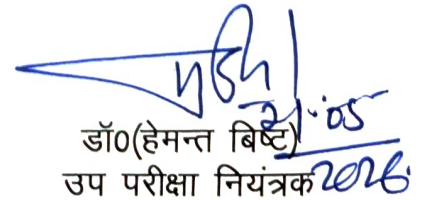 21.05
डॉ0(हेमन्त बिष्ट)
उप परीक्षा नियंत्रक 2026